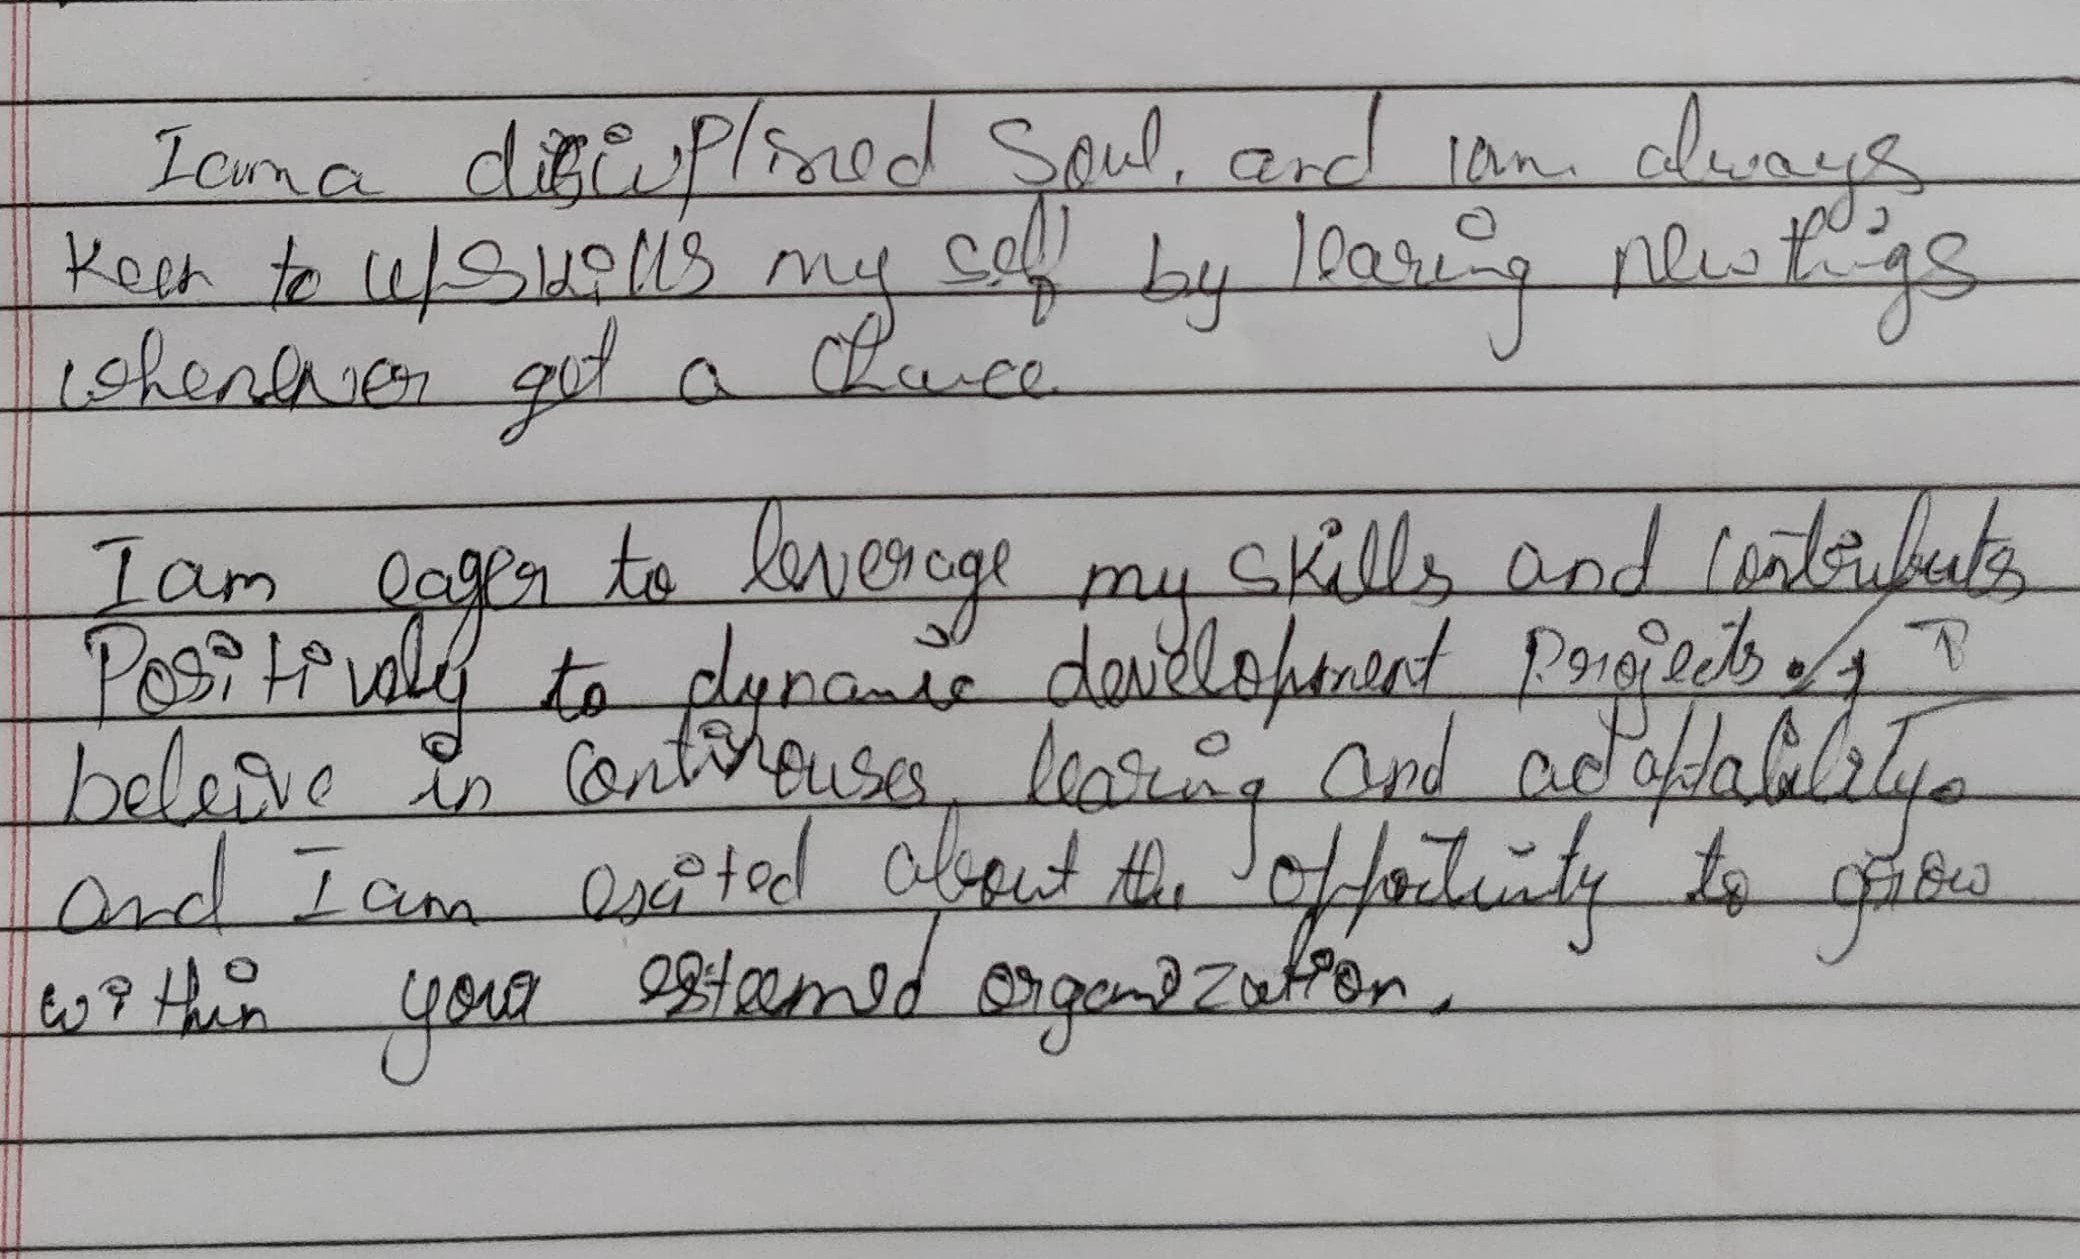 I am a disciplined Soul, and iam always
Keen to upskills my self by learing new things
whenever got a chance
I am eager to leverage my skills and contributs
Positively to dynamic development Projects. I
beleive in continouses learing and adaptability.
and I am exited about the opportuinty to grow
within your esteemed organization.